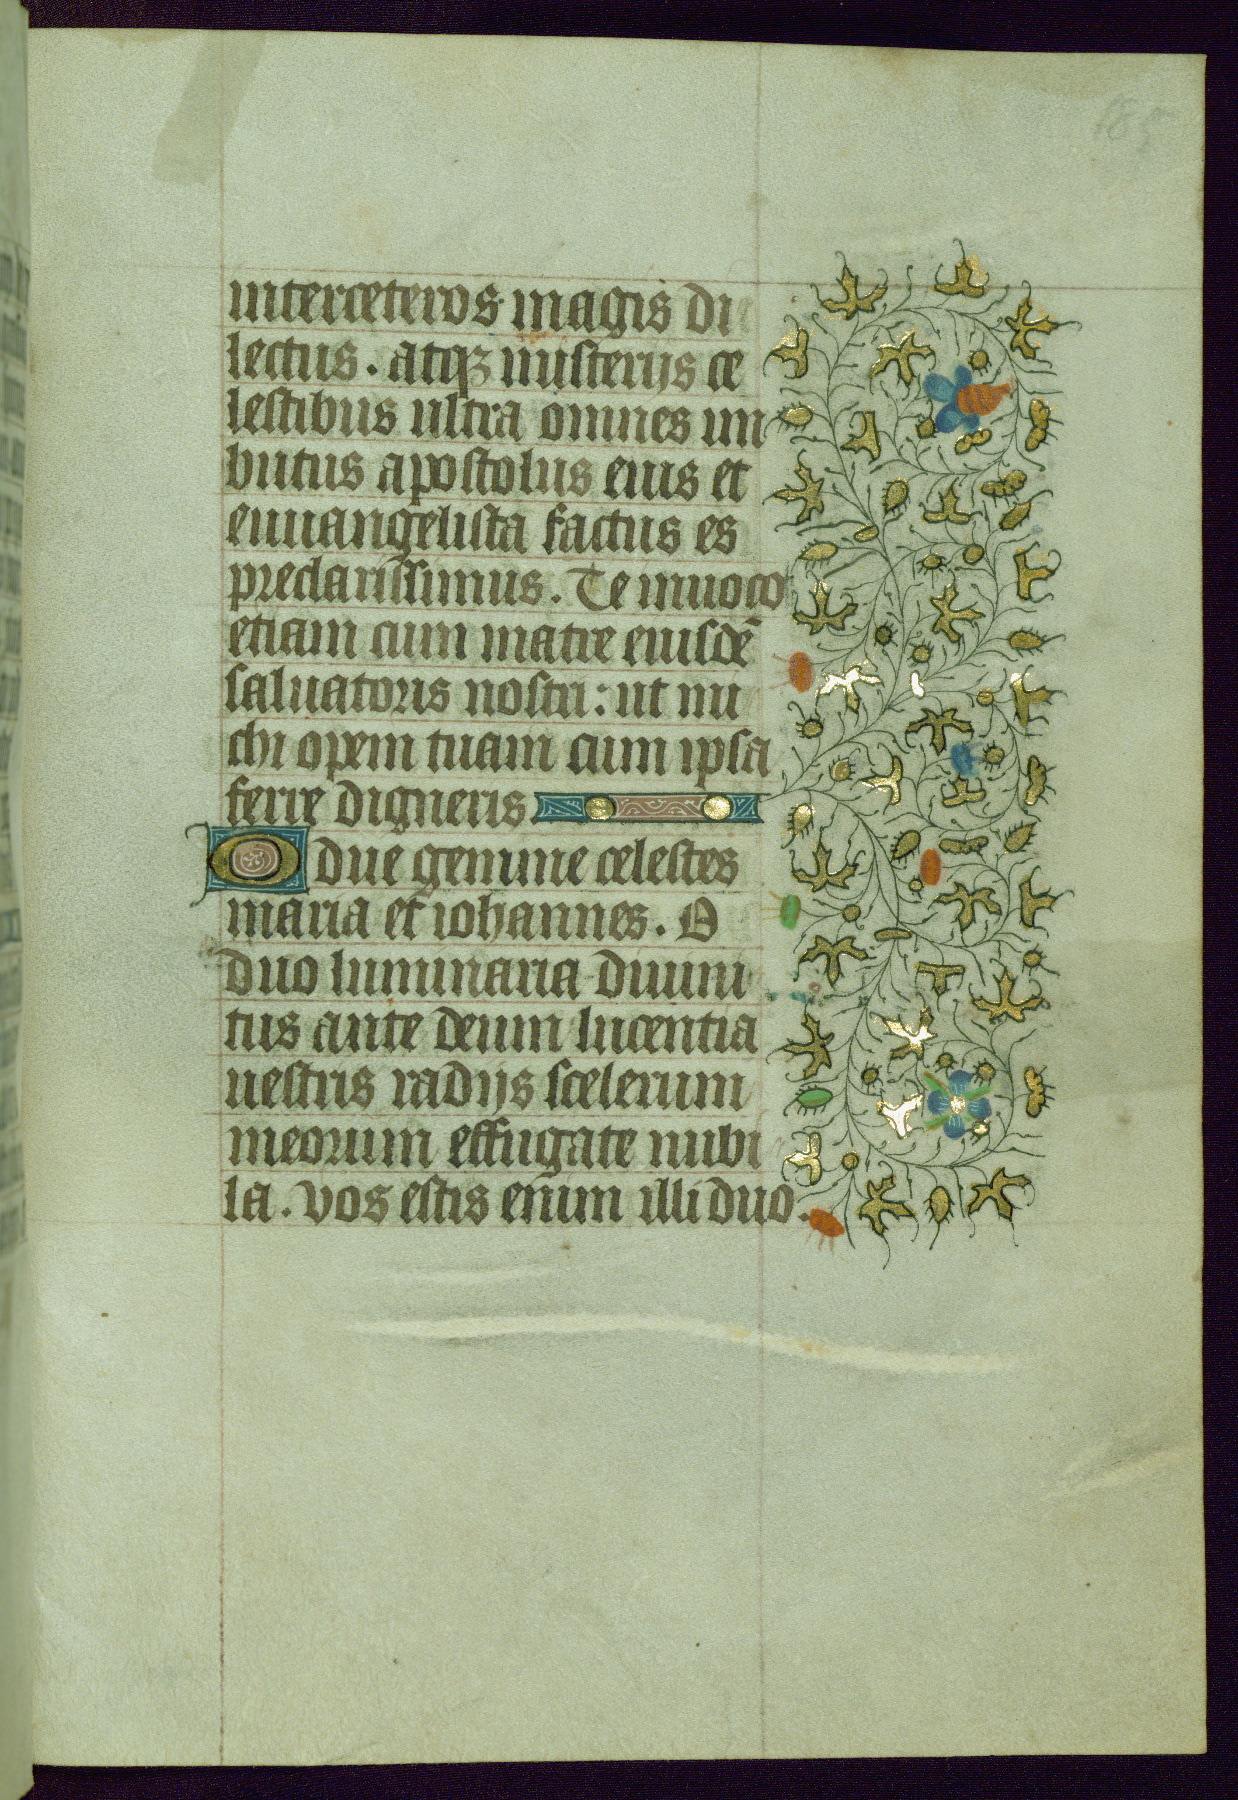 185
interceteros magis di
lectus. atqꝫ misterijs ce
lestibus ultra omnes im
butus apostolus eius et
euuangelista factus es
preclarissimus. Te inuoco
etiam cum matre eiusdē
saluatoris nostri: ut mi
chi opem tuam cum ipsa
ferre digneris
O due gemme celestes
maria et iohannes. O
duo luminaria diuini
tus ante deum lucentia
uestris radijs scelerum
meorum effugate nubi
la. Vos estis enim illi duo.